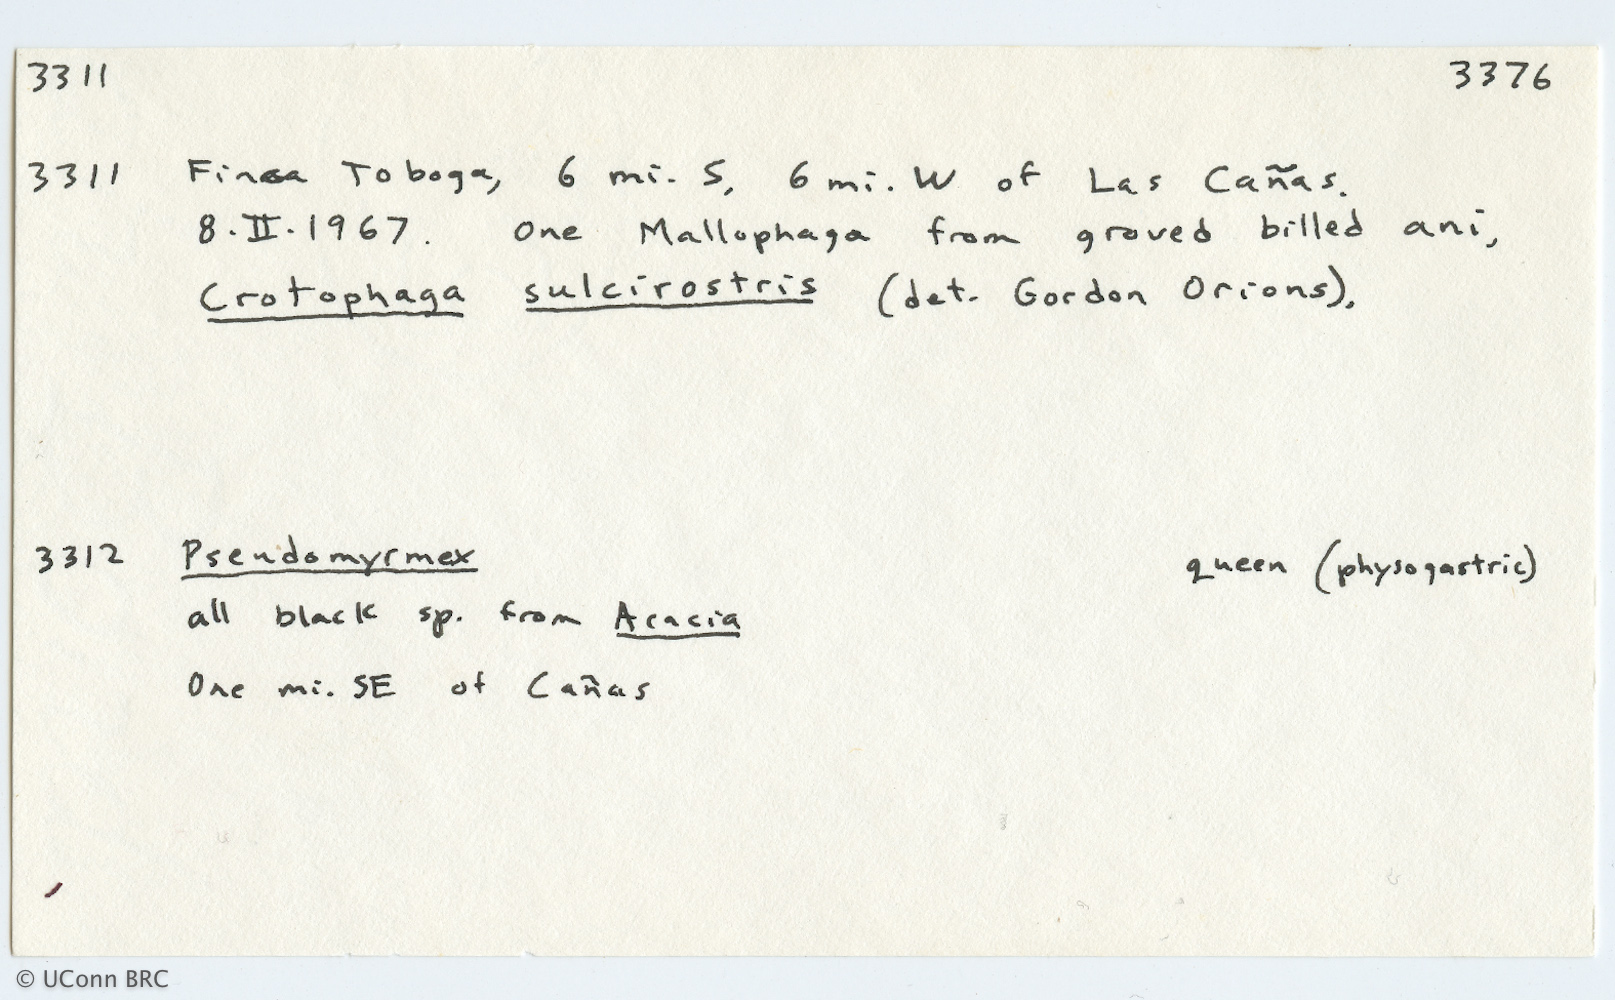 3311 3376
3311 Finca Toboga, 6 mi. S, 6 mi. W of Las Cañas.
8.II.1967. One Mallophaga from groved billed ani,
Crotophaga sulcirostris (det. Gordon Orions).
3312 Pseudomyrmex queen (physogastric)
all black sp. from Acacia
One mi. SE of Cañas
© UConn BRC